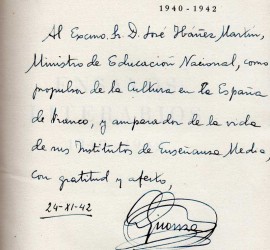 1940-1942
Al Excmo. Sr. D. José Ibáñez Martín,
Ministro de Educación Nacional, como
propulsor de la Cultura en la España
de Franco, y amparador de la vida
de sus Institutos de Enseñanza Media,
con gratitud y afecto,
24-XI-42